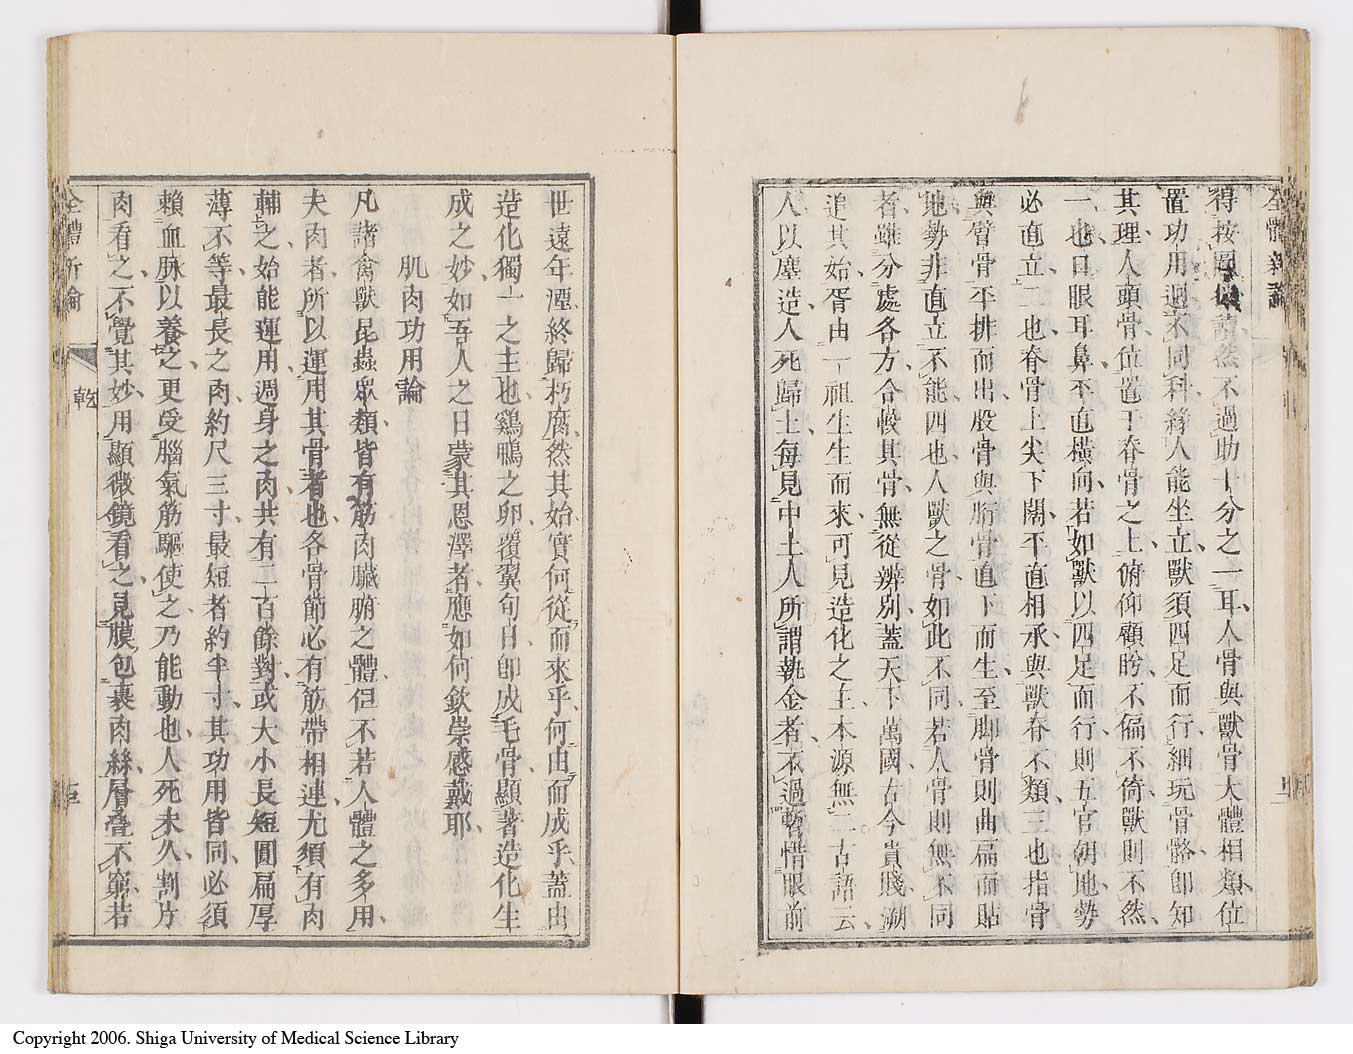 全體新論
得按圖讀然不過助十分之一耳人骨與獸骨大體相類位
置功用迥不同科緣人能坐立獸須四足而行細玩骨骼卽知
其理人頭骨位置于脊骨之上俯仰顧盻不偏不倚獸則不然
一也口眼耳鼻平直橫向若如獸以四足而行則五官朝地勢
必直立二也脊骨上尖下濶平直相承與獸脊不類三也指骨
與臂骨平排而出股骨與骨直下而生至脚骨則曲扁而貼
地勢非直立不能四也人獸之骨如此不同若人骨則無不同
者雖分處各方合帙其骨無從辨別蓋天下萬國古今貴賤溯
追其始胥由一祖生生而來可見造化之主本源無二古語云
人以塵造人死歸土每見中土人所謂執金者不過暫惜眼前
世遠年湮終歸朽腐然其始實何從而來乎何由而成乎蓋由
造化獨一之主也鷄鴨之卵覆翼旬日卽成毛骨顯著造化生
成之妙如吾人之日蒙其恩澤者應如何欽崇感戴耶
肌肉功用論
凡諸禽獸昆蟲衆類皆有筋肉臟腑之體但不若人體之多用
夫肉者所以運用其骨者也各骨節必有筋帶相連尤須有肉
輔之始能運用週身之肉共有二百餘對或大小長短圓扁厚
薄不等最長之肉約尺三寸最短者約半寸其功用皆同必須
賴血脉以養之更受腦氣筋驅使之乃能動也人死未久割片
肉看之不覺其妙用顯微鏡看之見膜包裹肉絲層疊不窮若
全體新論
乾